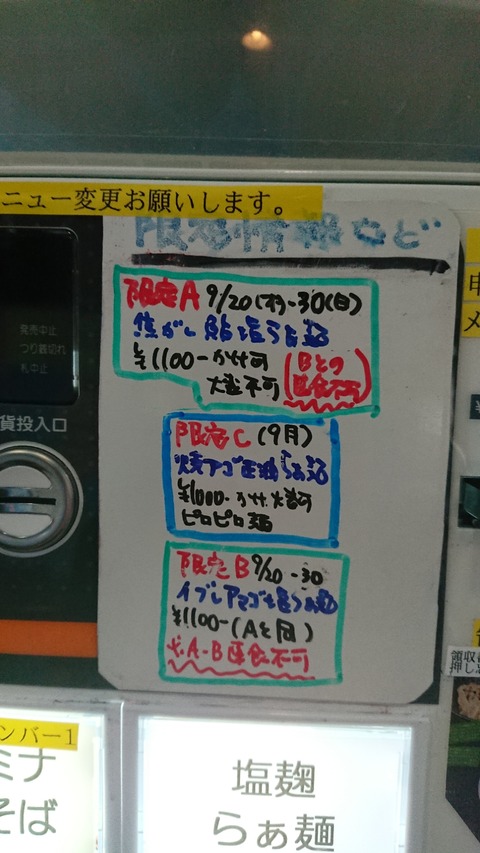 ニュー変更お願いします。
限定情報など
限定A 9/20(木)-30(日)
焦がし鮎塩らぁ麺
¥1100- かけ可
大盛不可 (Bとの
連食不可)
限定C (9月)
焼アゴ正油らぁ麺
¥1000- かけ大盛可
ピロピロ麺
限定B 9/20-30
イブシアマゴ塩らぁ麺
¥1100-(Aと同)
※A-B連食不可
発売中止
つり銭切れ
札中止
貨投入口
申
メ
領収
押し
ンバー1
ミナ
そば
塩麹
らぁ麺